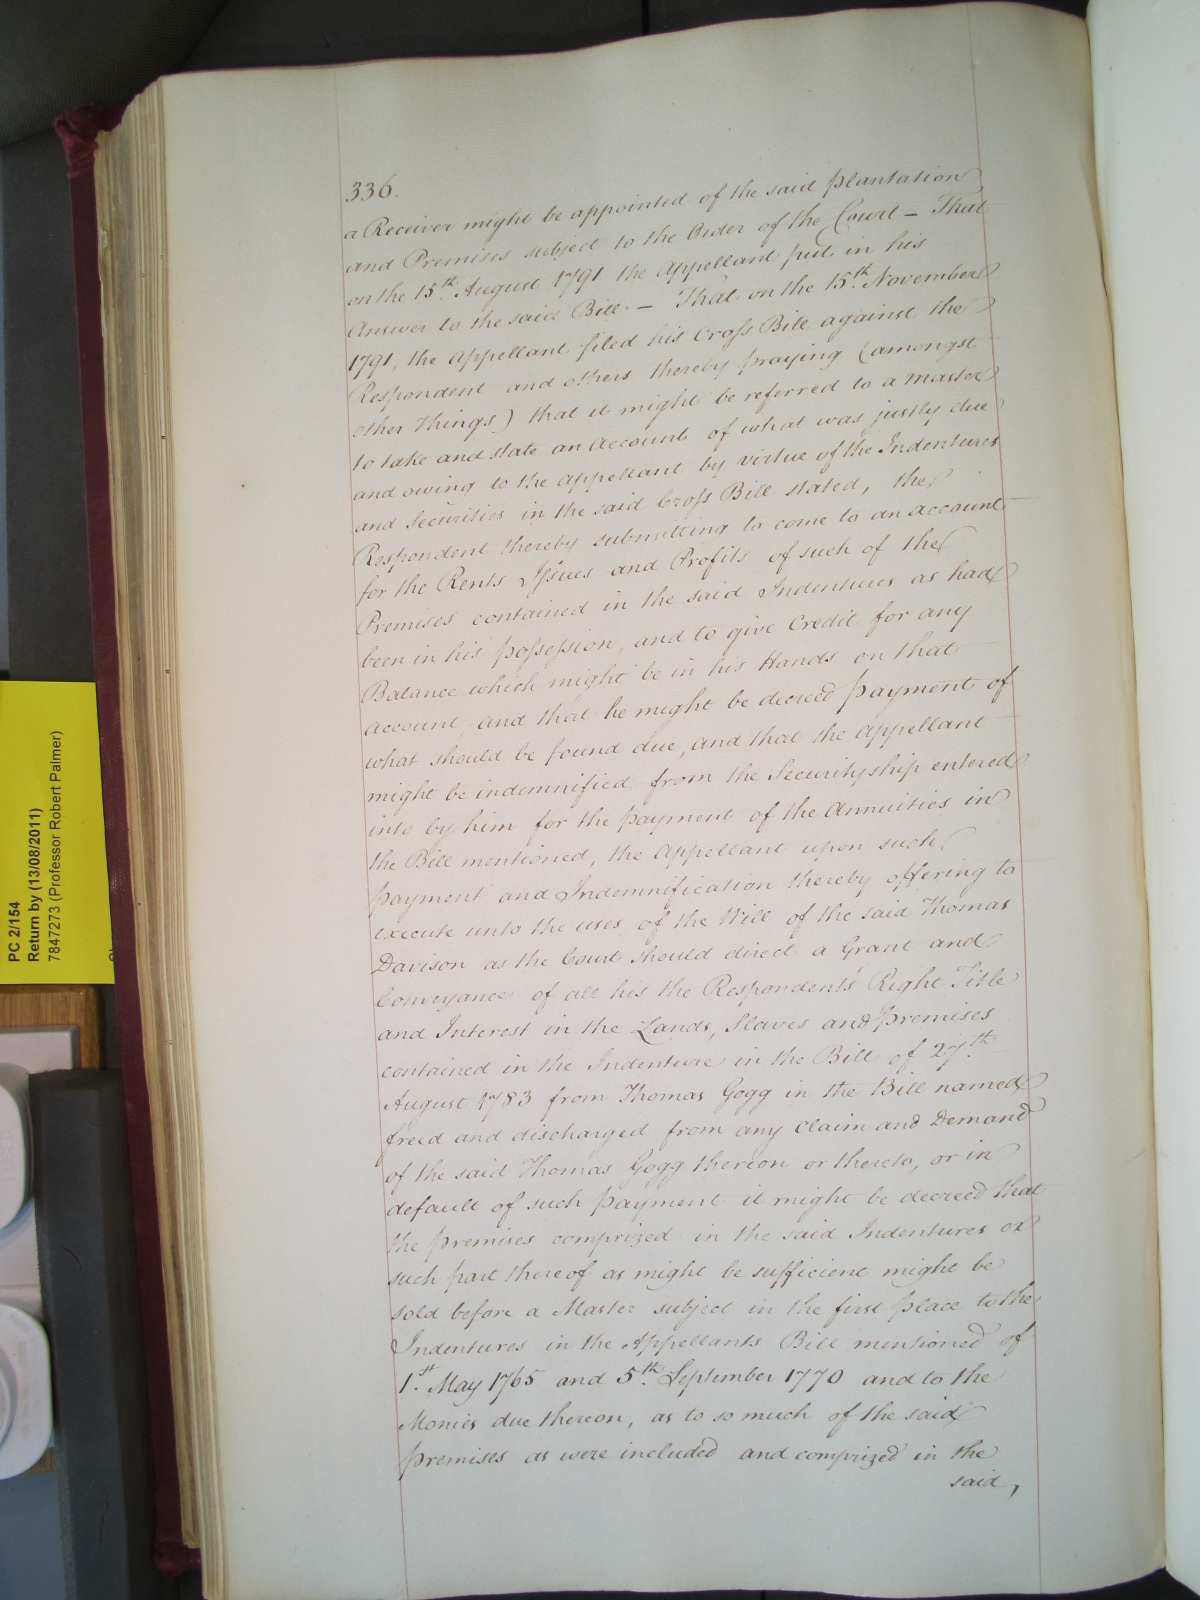 336.
a Receiver might be appointed of the said plantation
and Premises subject to the Order of the Court – That
on the 15th. August 1791 the Appellant put in his
Answer to the said Bill. – That on the 15th. November
1791, the Appellant filed his Cross Bill against the
Respondent and others thereby praying (amongst
other things) that it might be referred to a Master
to take and state an Account of what was justly due
and owing to the Appellant by virtue of the Indentures
and Securities in the said Cross Bill stated, the
Respondent thereby submitting to come to an account
for the Rents Issues and Profits of such of the
Premises contained in the said Indentures as had
been in his possession, and to give Credit for any
Balance which might be in his Hands on that
account, and that he might be decreed payment of
what should be found due, and that the Appellant
might be indemnified from the Securityship entered
into by him for the payment of the Annuities in
the Bill mentioned, the Appellant upon such
payment and Indemnification thereby offering to
execute unto the uses of the Will of the said Thomas
Davison as the Court should direct a Grant and
Conveyance of all his the Respondents' Right Title
and Interest in the Lands, Slaves and premises
contained in the Indenture in the Bill of 27th.
August 1783 from Thomas Gogg in the Bill named
freed and discharged from any claim and Demand
of the said Thomas Gogg thereon or thereto, or in
default of such payment it might be decreed that
the premises comprized in the said Indentures or
such part thereof as might be sufficient might be
sold before a Master subject in the first place to the
Indentures in the Appellants Bill mentioned of
1st. May 1765 and 5th. September 1770 and to the
Monies due thereon, as to so much of the said
premises as were included and comprized in the
said,
PC 2/154
Return by (13/08/2011)
7847273 (Professor Robert Palmer)